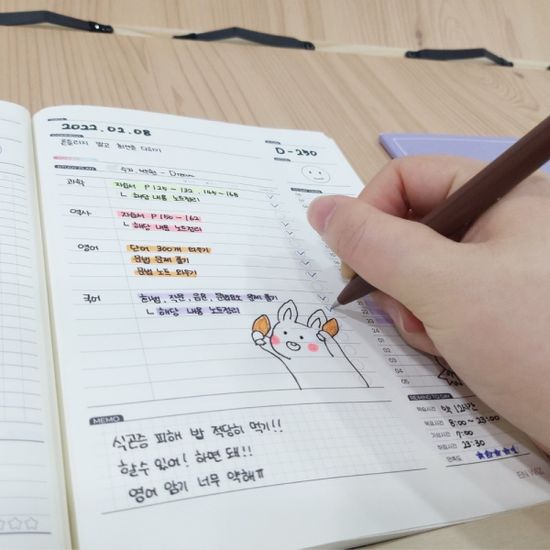 2022.02.08
D-280
흔들리지 말고 최선을 다하기
STUDY PLAN
과학 자습서 P 125 ~ 132, 165 ~ 168
ㄴ 해당 내용 노트정리
역사 자습서 P 150 ~ 162
ㄴ 해당 내용 노트정리
영어 단어 300개 외우기
문법 문제 풀기
문법 노트 외우기
국어 문제 풀기
ㄴ 해당 내용 노트정리
MEMO
식곤증 피해 밥 적당히 먹기!!
할수 있어! 하면 돼!!
영어 암기 너무 약해ㅠ
REMIND TODAY
약 12시간
8:00 ~ 23:00
7:00
23:30